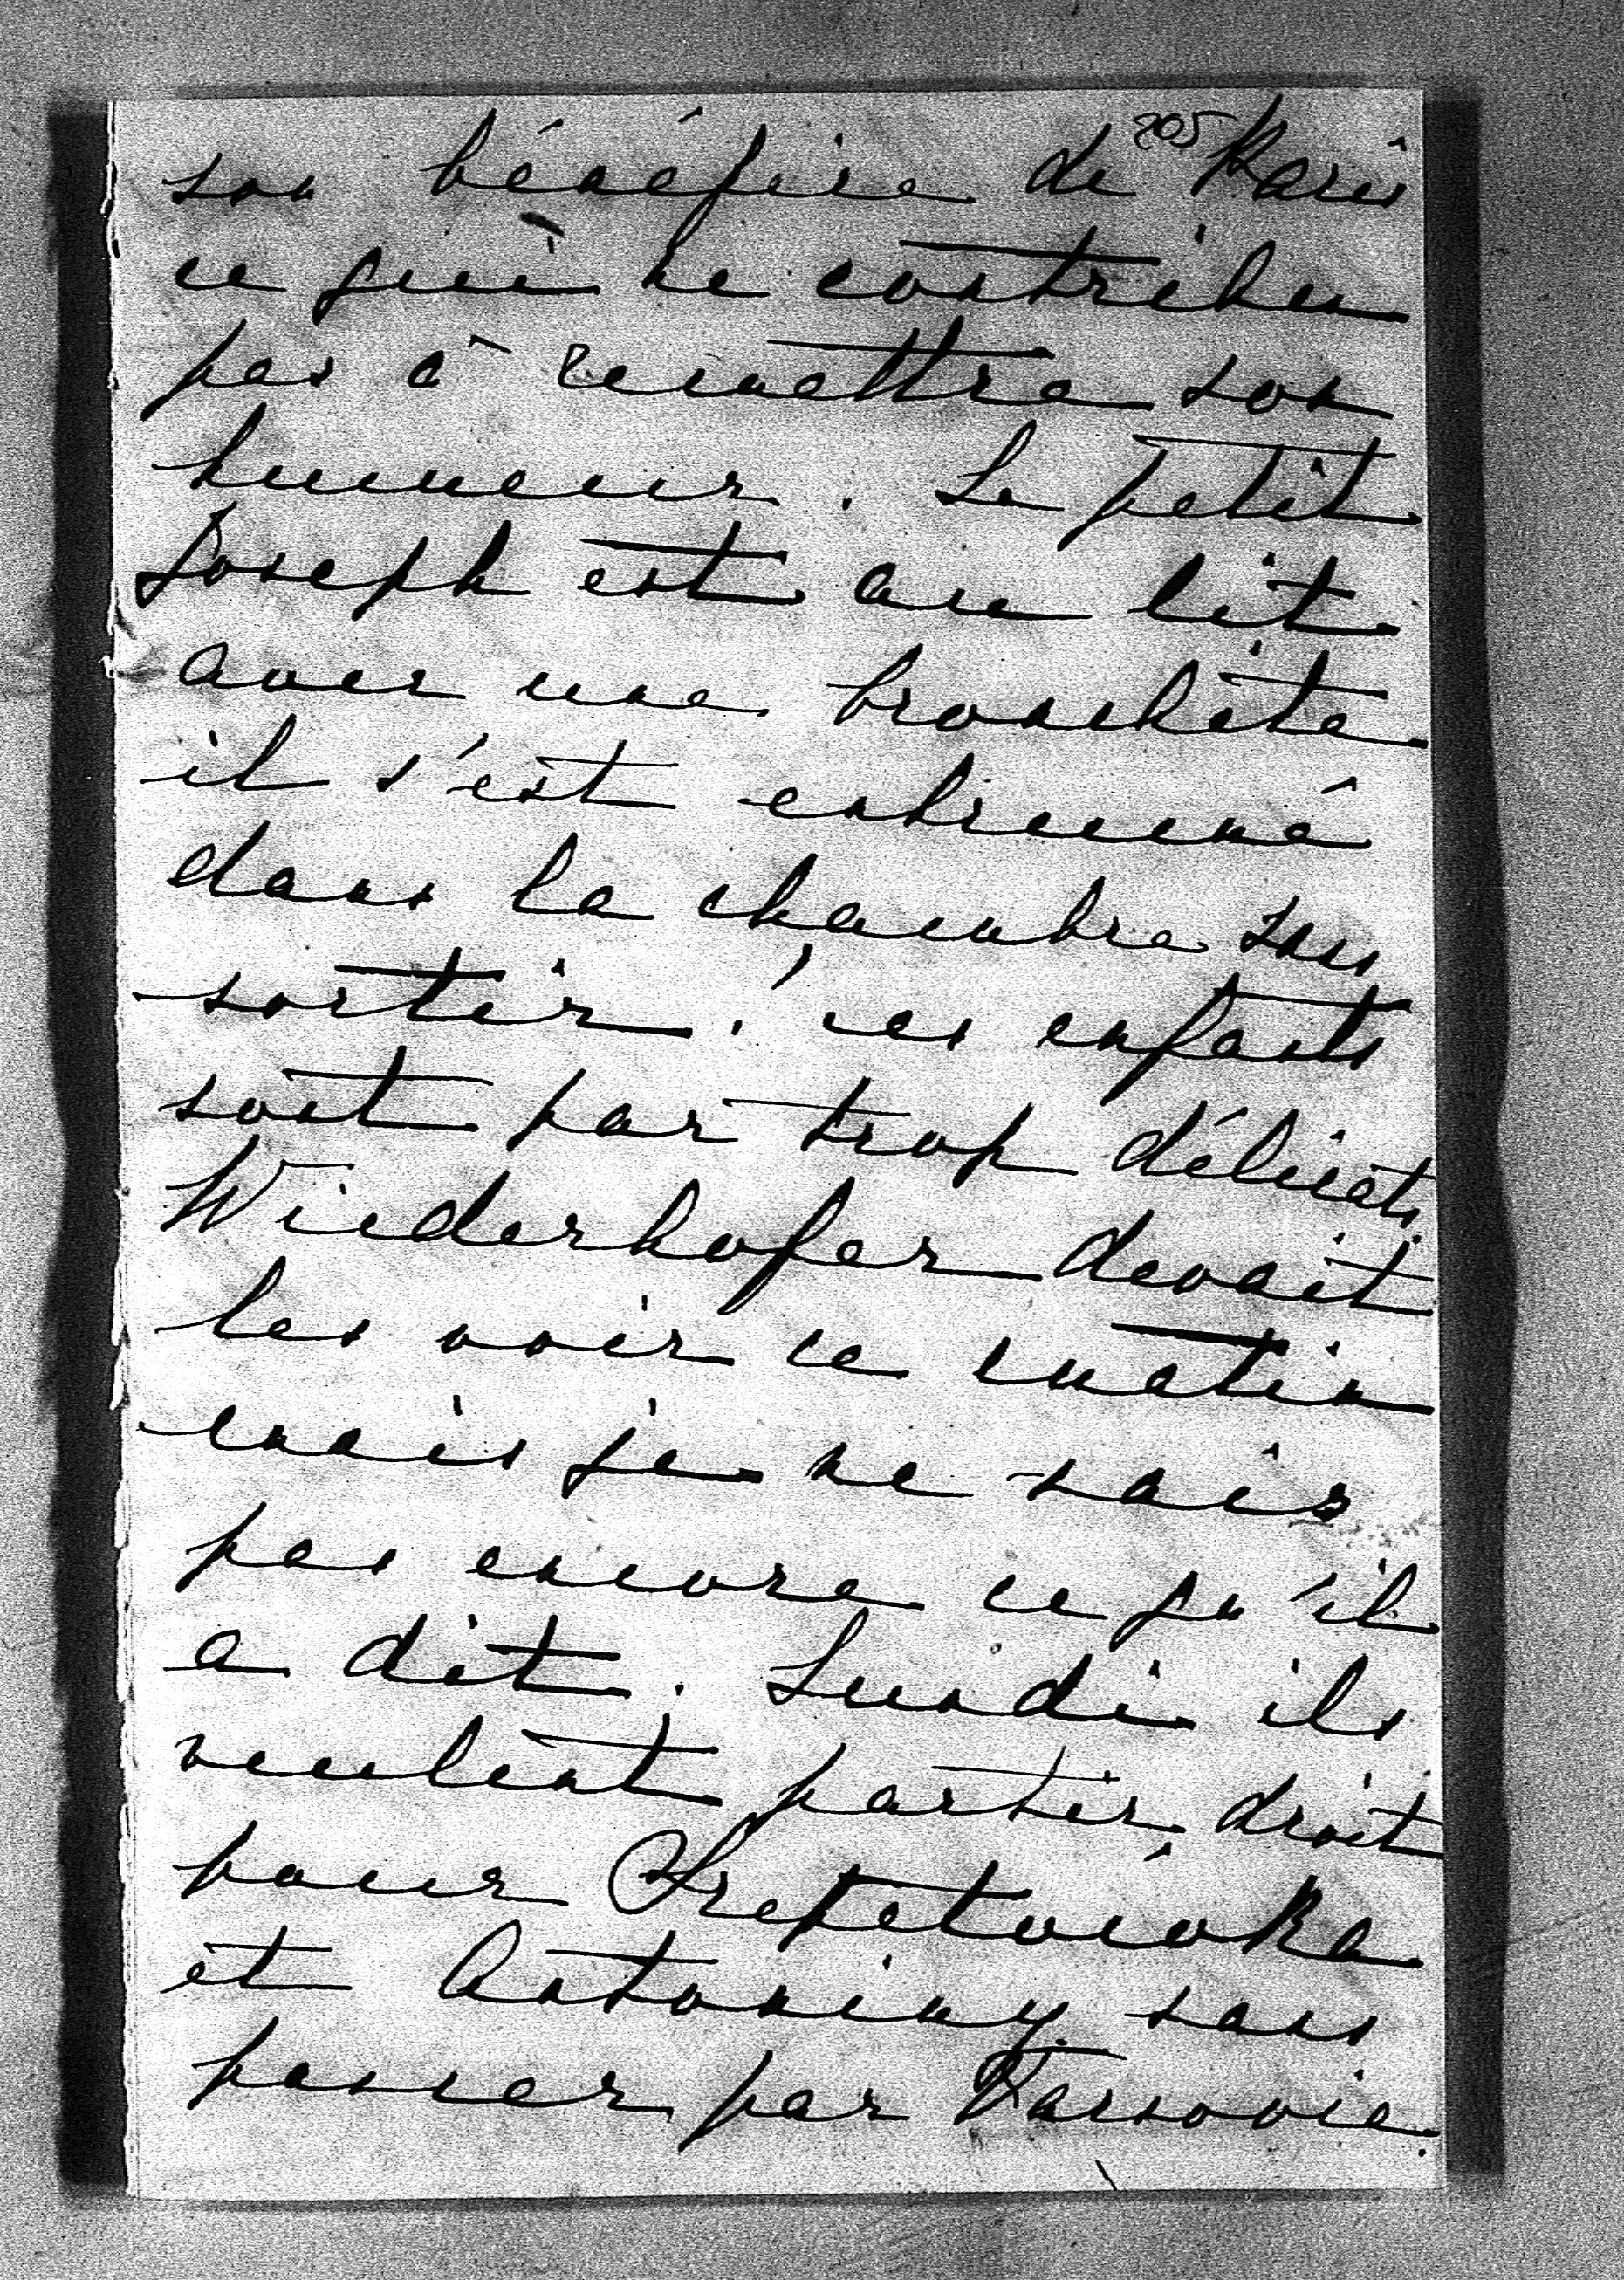 205
son bénéfice de Paris
ce qui ne contribue
pas à remettre son
humeur. Le petit
Joseph est au lit
avec une bronchite
il s'est enrhumé
dans la chambre sans
sortir! ces enfants
sont par trop délicats.
Wiederhofer devait
les voir ce matin
mais je ne sais
pas encore ce qu'il
a dit. Lundi ils
veulent partir droit
pour Szepetówka
et Antoniny sans
passer par Varsovie.